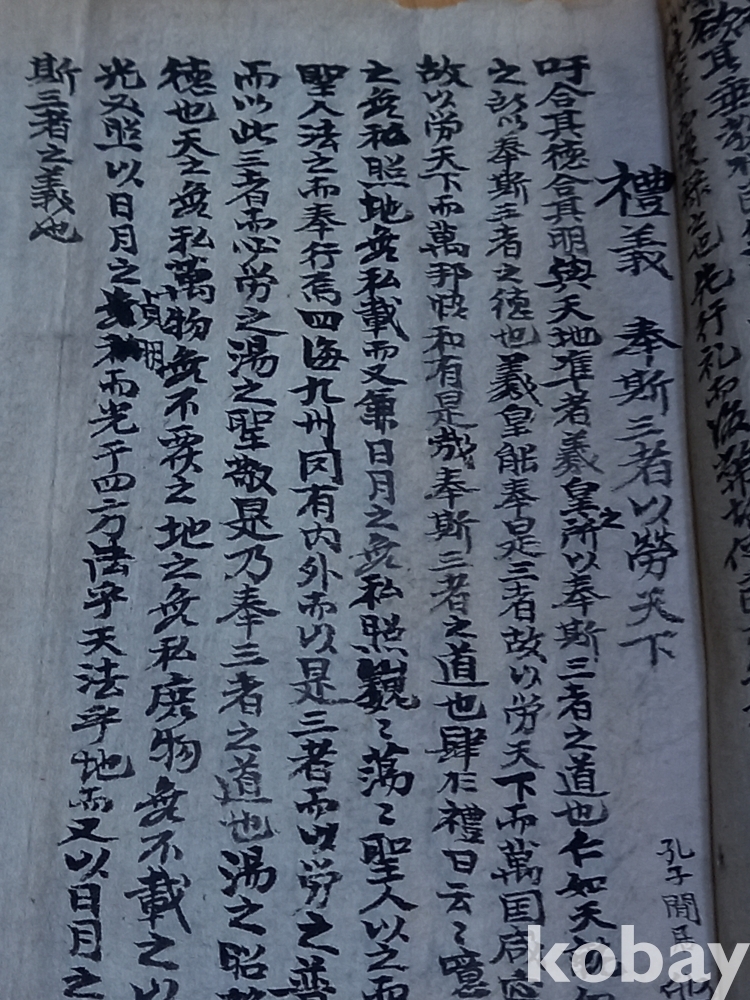 禮義 奉斯三者以勞天下
孔子閒居
吁合其德合其明與天地準者羲皇之所以奉斯三者之道也仁如天
之所以奉斯三者之德也羲皇能奉是三者故以勞天下而萬国咸
故以勞天下而萬邦時和有是哉奉斯三者之道也肆於禮曰云〻噫
之無私照地無私載而又兼日月之無私照巍〻蕩〻聖人以之而
聖人法之而奉行焉四海九州罔有內外而以是三者而以勞之
而以此三者而必勞之湯之聖敬是乃奉三者之道也湯之昭
德也天之無私萬物無不覆之地之無私庶物無不載之以
光又照以日月之貞明而光于四方法乎天法乎地而又以日月之
斯三者之義也
先行礼而後
kobay